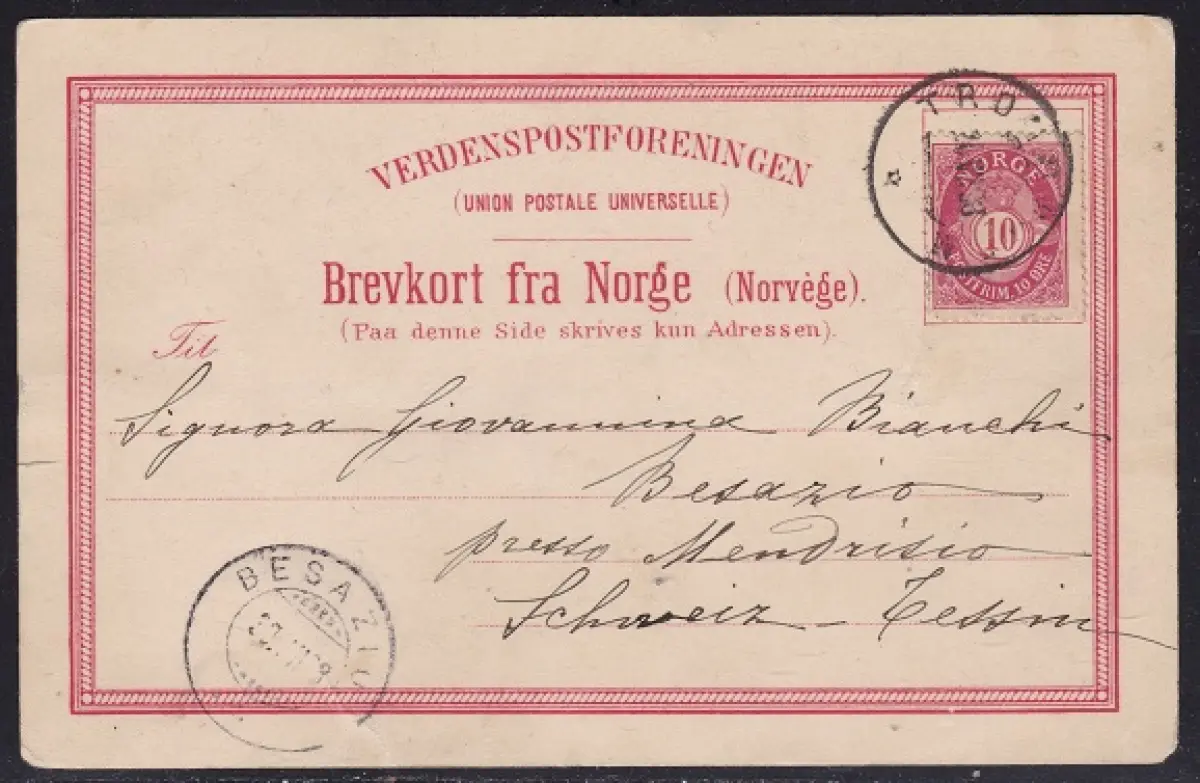 VERDENSPOSTFORENINGEN
(UNION POSTALE UNIVERSELLE)
Brevkort fra Norge (Norvège).
(Paa denne Side skrives kun Adressen).
NORGE
10
FRIM. 10 ØRE
Til
Signora Giovannina Bianchi
Besazio
presso Mendrisio
Schweiz - Tessin
BESAZIO